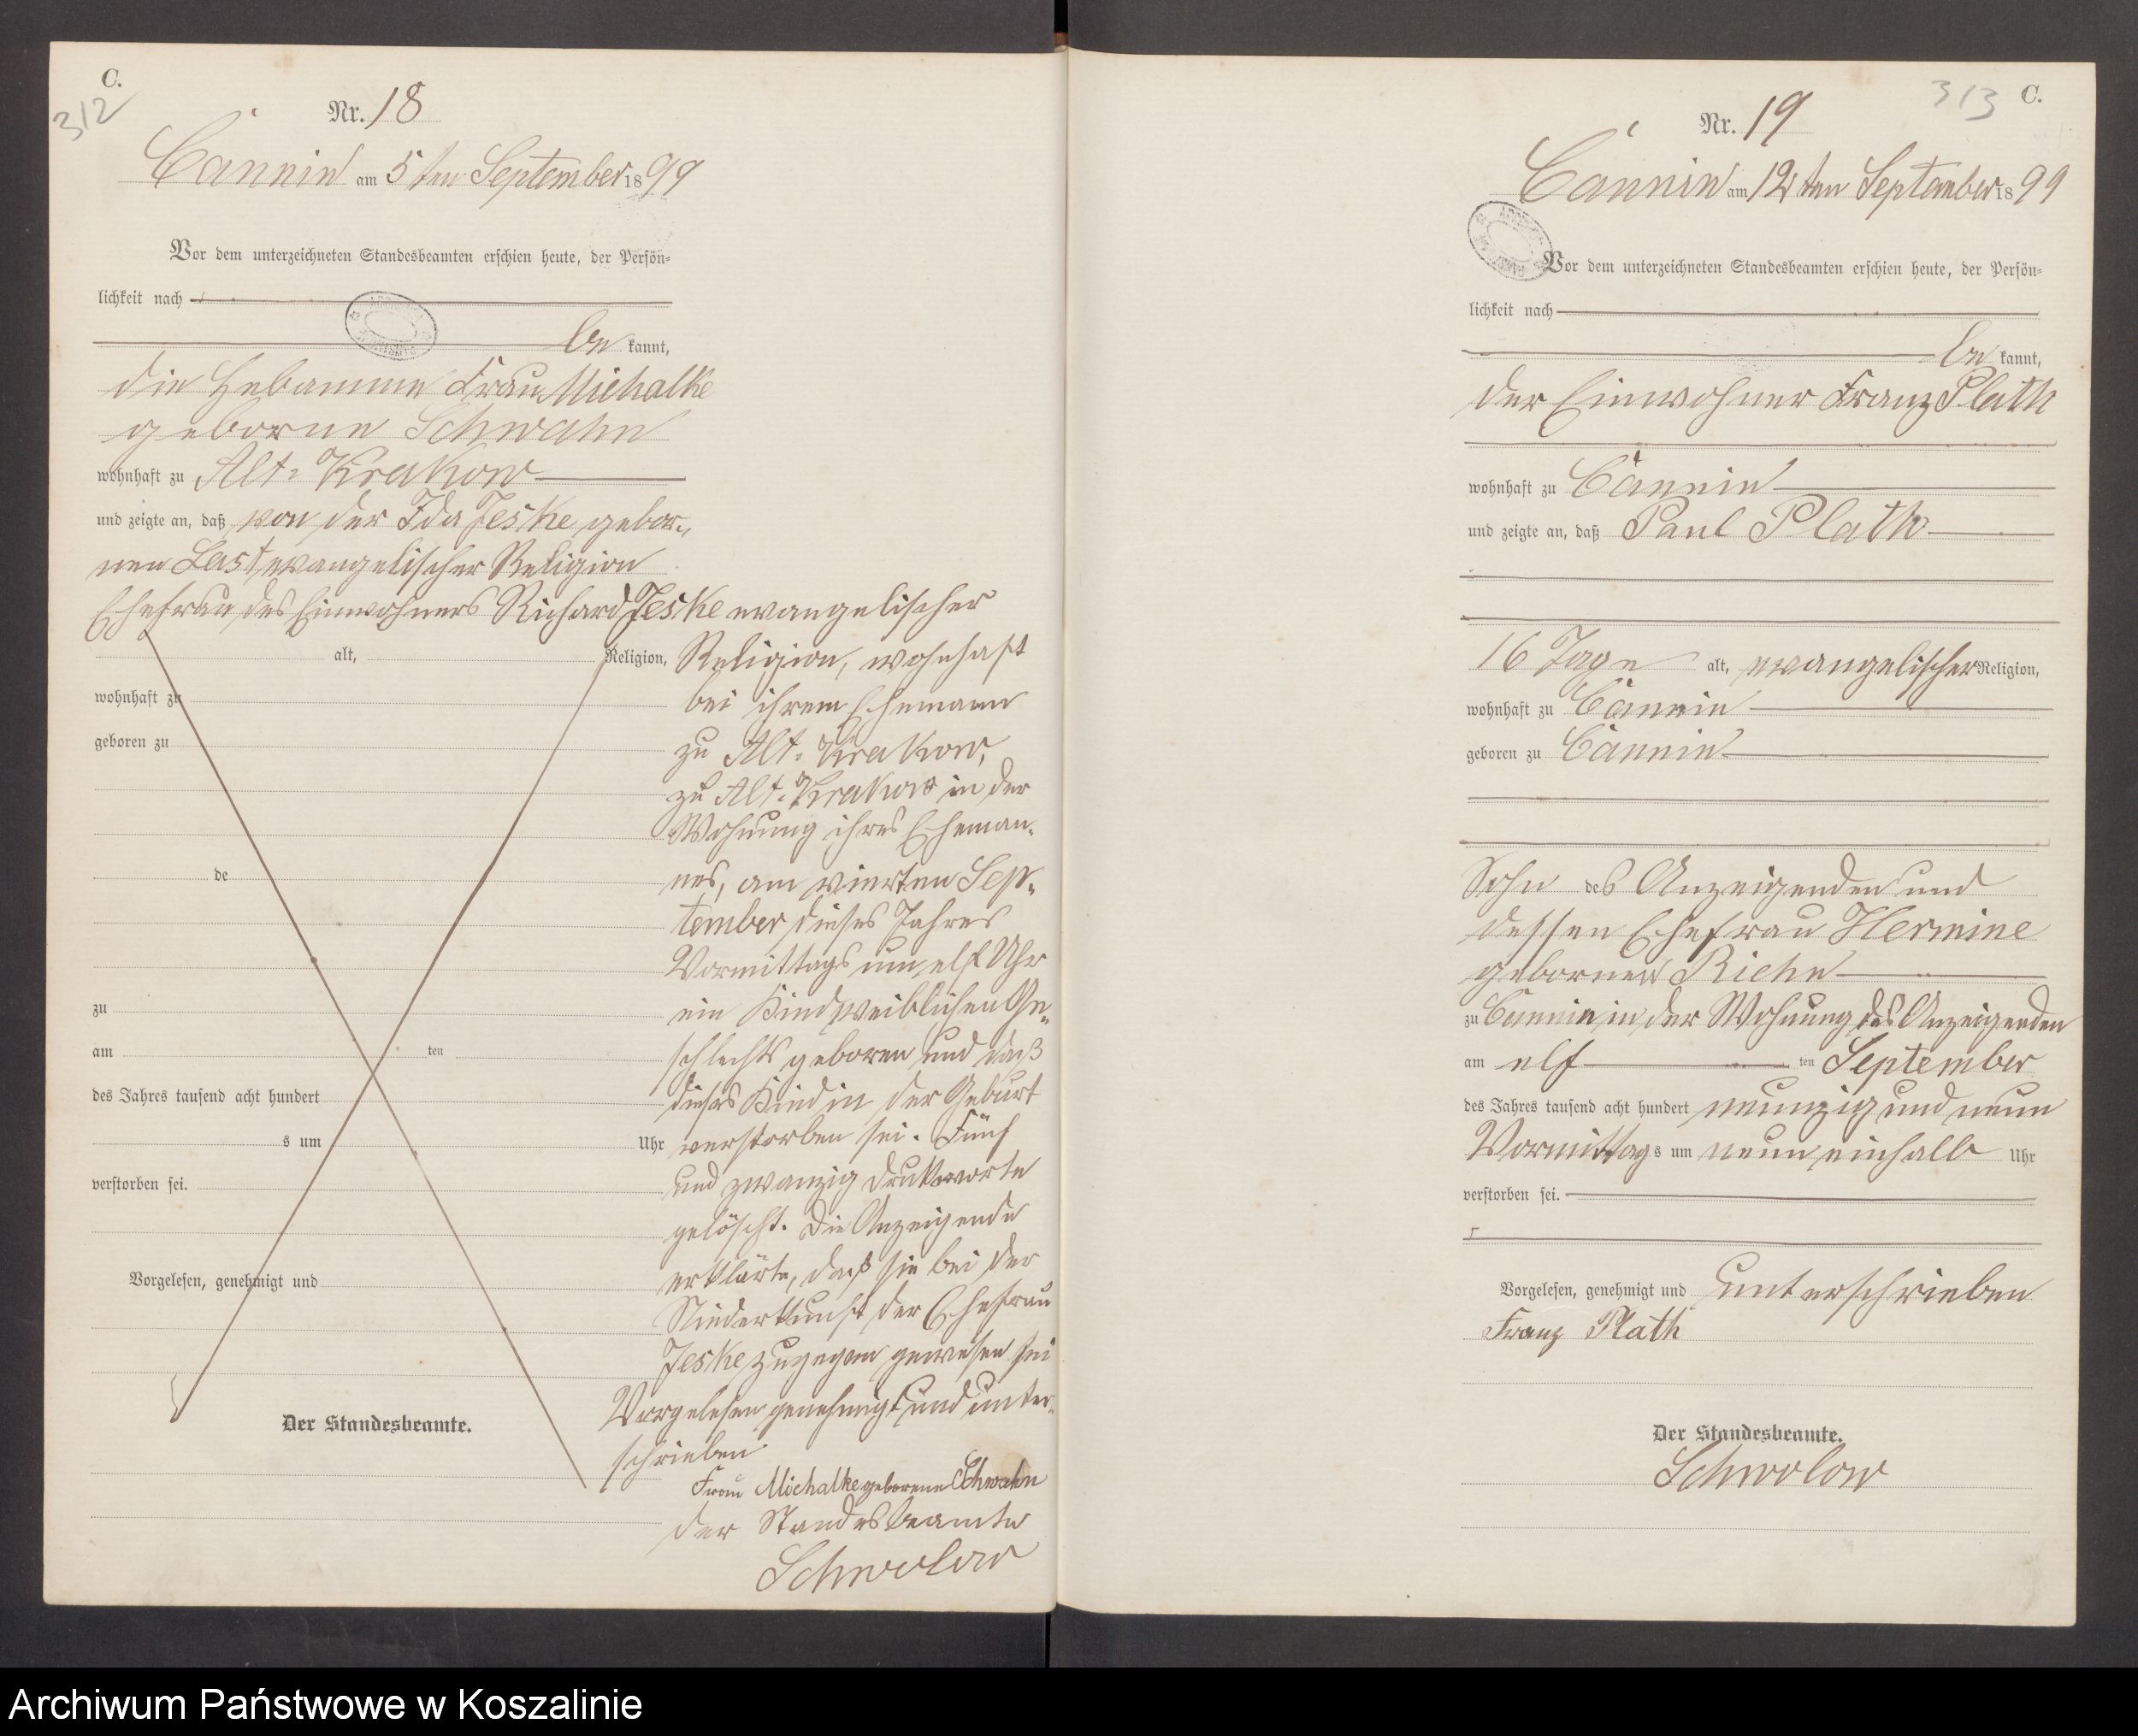 C.
312
Nr. 18
Cannin am 5ten September 1899
Vor dem unterzeichneten Standesbeamten erschien heute, der Persön-
lichkeit nach
be kannt,
die Hebamme Frau Michalke
geborne Schwahn
wohnhaft zu Alt-Krakow
und zeigte an, daß von der Ida Jeske gebor-
nen Last, evangelischer Religion
Ehefrau des Einwohners Richard Jeske evangelischer
alt, Religion, Religion, wohnhaft
wohnhaft zu bei ihrem Ehemann
geboren zu zu Alt-Krakow,
zu Alt-Krakow in der
Wohnung ihres Eheman-
de nes, am vierten Sep-
tember dieses Jahres
Vormittags um elf Uhr
zu ein Kind weiblichen Ge-
am ten schlechts geboren und daß
des Jahres tausend acht hundert dieses Kind in der Geburt
s um Uhr verstorben sei. Fünf
verstorben sei. und zwanzig Druckworte
gelöscht. Die Anzeigende
erklärte, daß sie bei der
Vorgelesen, genehmigt und Niederkunft der Ehefrau
Jeske zugegen gewesen sei
Vorgelesen genehmigt und unter-
Der Standesbeamte.
schrieben
Frau Michalke geborene Schwahn
der Standesbeamte
Schwolow
313 C.
Nr. 19
Cannin am 12ten September 1899
Vor dem unterzeichneten Standesbeamten erschien heute, der Persön-
lichkeit nach
be kannt,
der Einwohner Franz Plath
wohnhaft zu Cannin
und zeigte an, daß Paul Plath
16 Tage alt, evangelischer Religion,
wohnhaft zu Cannin
geboren zu Cannin
Sohn des Anzeigenden und
dessen Ehefrau Hermine
gebornen Riehn
zu Cannin in der Wohnung des Anzeigenden
am elf ten September
des Jahres tausend acht hundert neunzig und neun
Vormittags um neun einhalb Uhr
verstorben sei.
Vorgelesen, genehmigt und unterschrieben
Franz Plath
Der Standesbeamte.
Schwolow
Archiwum Państwowe w Koszalinie